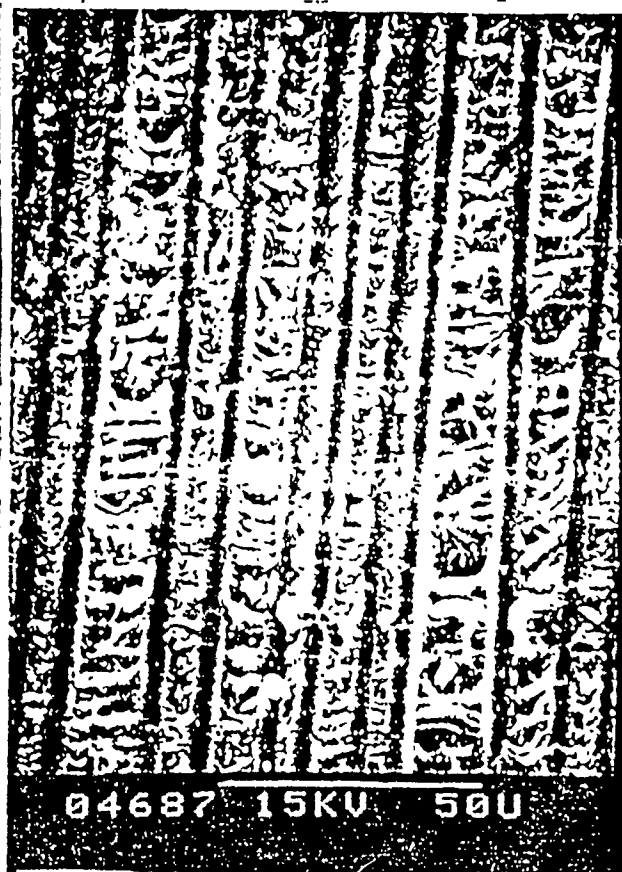 04687 15KV 50U